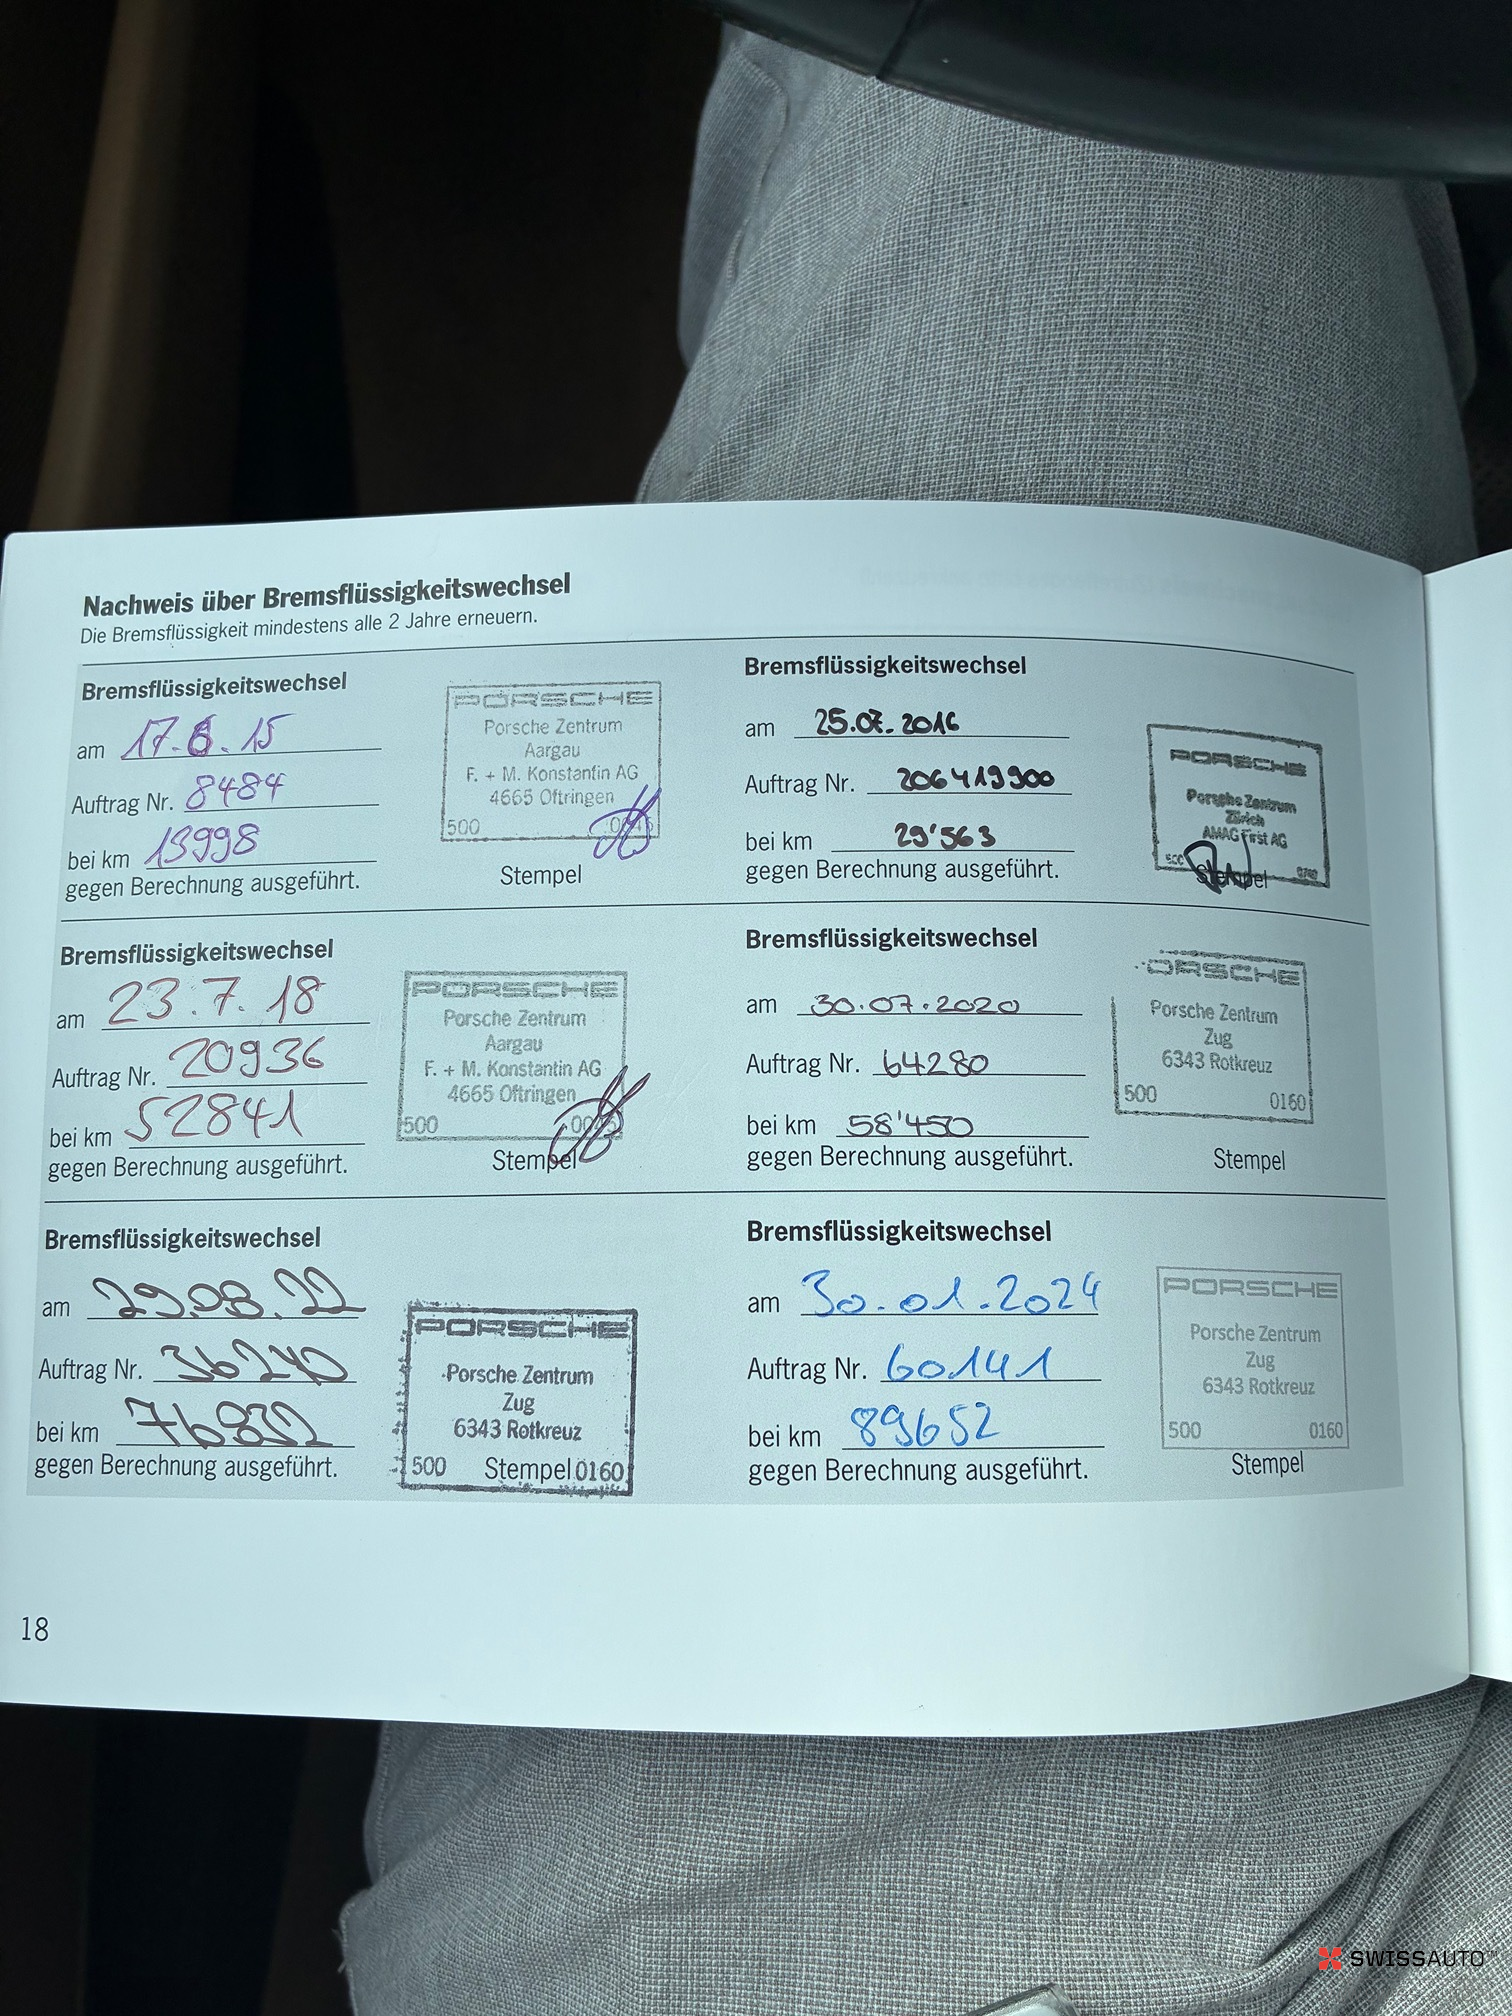 Nachweis über Bremsflüssigkeitswechsel
Die Bremsflüssigkeit mindestens alle 2 Jahre erneuern.
Bremsflüssigkeitswechsel
am 17.6.15
Auftrag Nr. 8484
bei km 13998
gegen Berechnung ausgeführt.
PORSCHE
Porsche Zentrum
Aargau
F. + M. Konstantin AG
4665 Oftringen
500
Stempel
Bremsflüssigkeitswechsel
am 25.07.2016
Auftrag Nr. 206419900
bei km 29'563
gegen Berechnung ausgeführt.
PORSCHE
Porsche Zentrum
Zürich
AMAG First AG
Stempel
Bremsflüssigkeitswechsel
am 23.7.18
Auftrag Nr. 20936
bei km 52841
gegen Berechnung ausgeführt.
PORSCHE
Porsche Zentrum
Aargau
F. + M. Konstantin AG
4665 Oftringen
500
Stempel
Bremsflüssigkeitswechsel
am 30.07.2020
Auftrag Nr. 64280
bei km 58'450
gegen Berechnung ausgeführt.
PORSCHE
Porsche Zentrum
Zug
6343 Rotkreuz
500 0160
Stempel
Bremsflüssigkeitswechsel
am 29.08.22
Auftrag Nr. 36240
bei km 76832
gegen Berechnung ausgeführt.
PORSCHE
Porsche Zentrum
Zug
6343 Rotkreuz
500 Stempel 0160
Bremsflüssigkeitswechsel
am 30.01.2024
Auftrag Nr. 60141
bei km 89652
gegen Berechnung ausgeführt.
PORSCHE
Porsche Zentrum
Zug
6343 Rotkreuz
500 0160
Stempel
18
SWISSAUTO